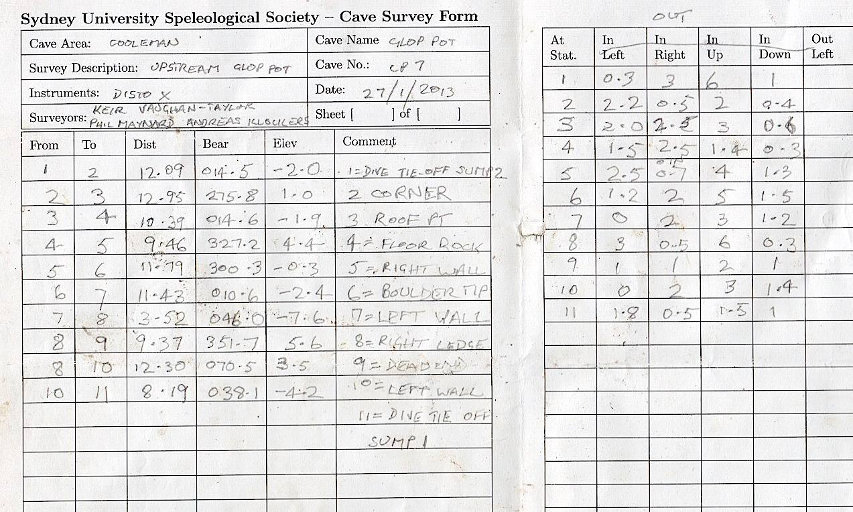 Sydney University Speleological Society – Cave Survey Form
Cave Area: COOLEMAN
Cave Name GLOP POT
Survey Description: UPSTREAM GLOP POT
Cave No.: CP 7
Instruments: DISTO X
Date: 27/1/2013
Surveyors: KEIR VAUGHAN-TAYLOR
PHIL MAYNARD ANDREAS KLOCKERS
Sheet [ ] of [ ]
From To Dist Bear Elev Comment
1 2 12.09 014.5 -2.0 1=DIVE TIE-OFF SUMP2
2 3 12.95 275.8 1.0 2 CORNER
3 4 10.39 014.6 -1.9 3 ROOF PT
4 5 9.46 327.2 4.4 4= FLOOR ROCK
5 6 11.79 300.3 -0.3 5=RIGHT WALL
6 7 11.43 010.6 -2.4 6= BOULDER TIP
7 8 3.52 046.0 -7.6 7=LEFT WALL
8 9 9.37 351.7 5.6 8=RIGHT LEDGE
8 10 12.30 070.5 3.5 9= DEADEND
10 11 8.19 038.1 -4.2 10=LEFT WALL
11= DIVE TIE OFF
SUMP 1
OUT
At Stat. In Left In Right In Up In Down Out Left
1 0.3 3 6 1
2 2.2 0.5 2 0.4
3 2.0 2.5 3 0.6
4 1.5 2.5 1.4 0.3
5 2.5 0.7 4 1.3
6 1.2 2 5 1.5
7 0 2 3 1.2
8 3 0.5 6 0.3
9 1 1 2 1
10 0 2 3 1.4
11 1.8 0.5 1.5 1